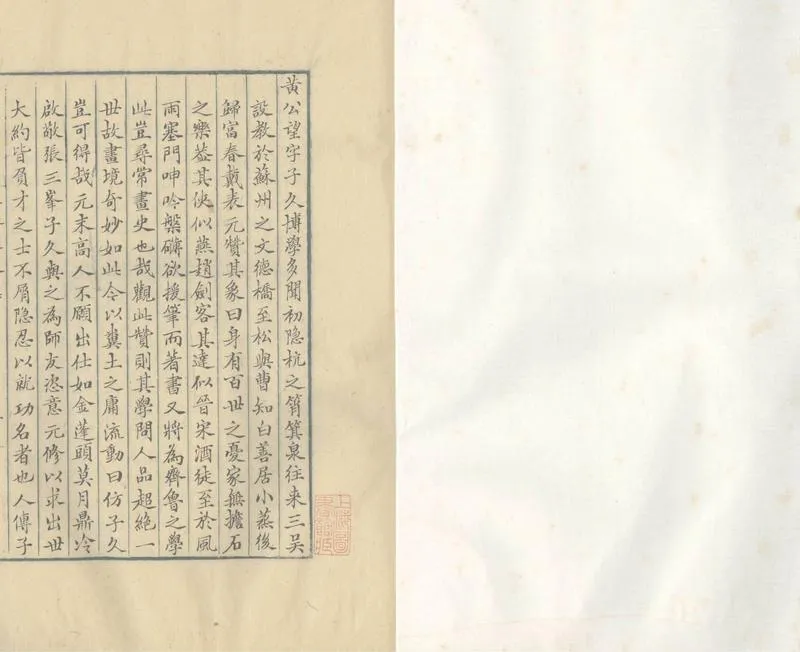 黃公望字子久博學多聞初隐杭之筲箕泉往来三吴
設教於蘇州之文德橋至松與曹知白善居小蒸後
歸富春戴表元贊其象曰身有百世之憂家無擔石
之樂葢其俠似燕趙劍客其達似晉宋酒徒至於風
雨塞門呻吟槃礴欲援筆而著書又將為齊魯之學
此豈尋常畫史也哉觀此贊則其學問人品超絕一
世故畫境奇妙如此今以糞土之庸流動曰仿子久
豈可得哉元末高人不願出仕如金蓬頭莫月鼎冷
啟敬張三峯子久與之為師友恣意元修以求出世
大約皆負才之士不屑隐忍以就功名者也人傳子